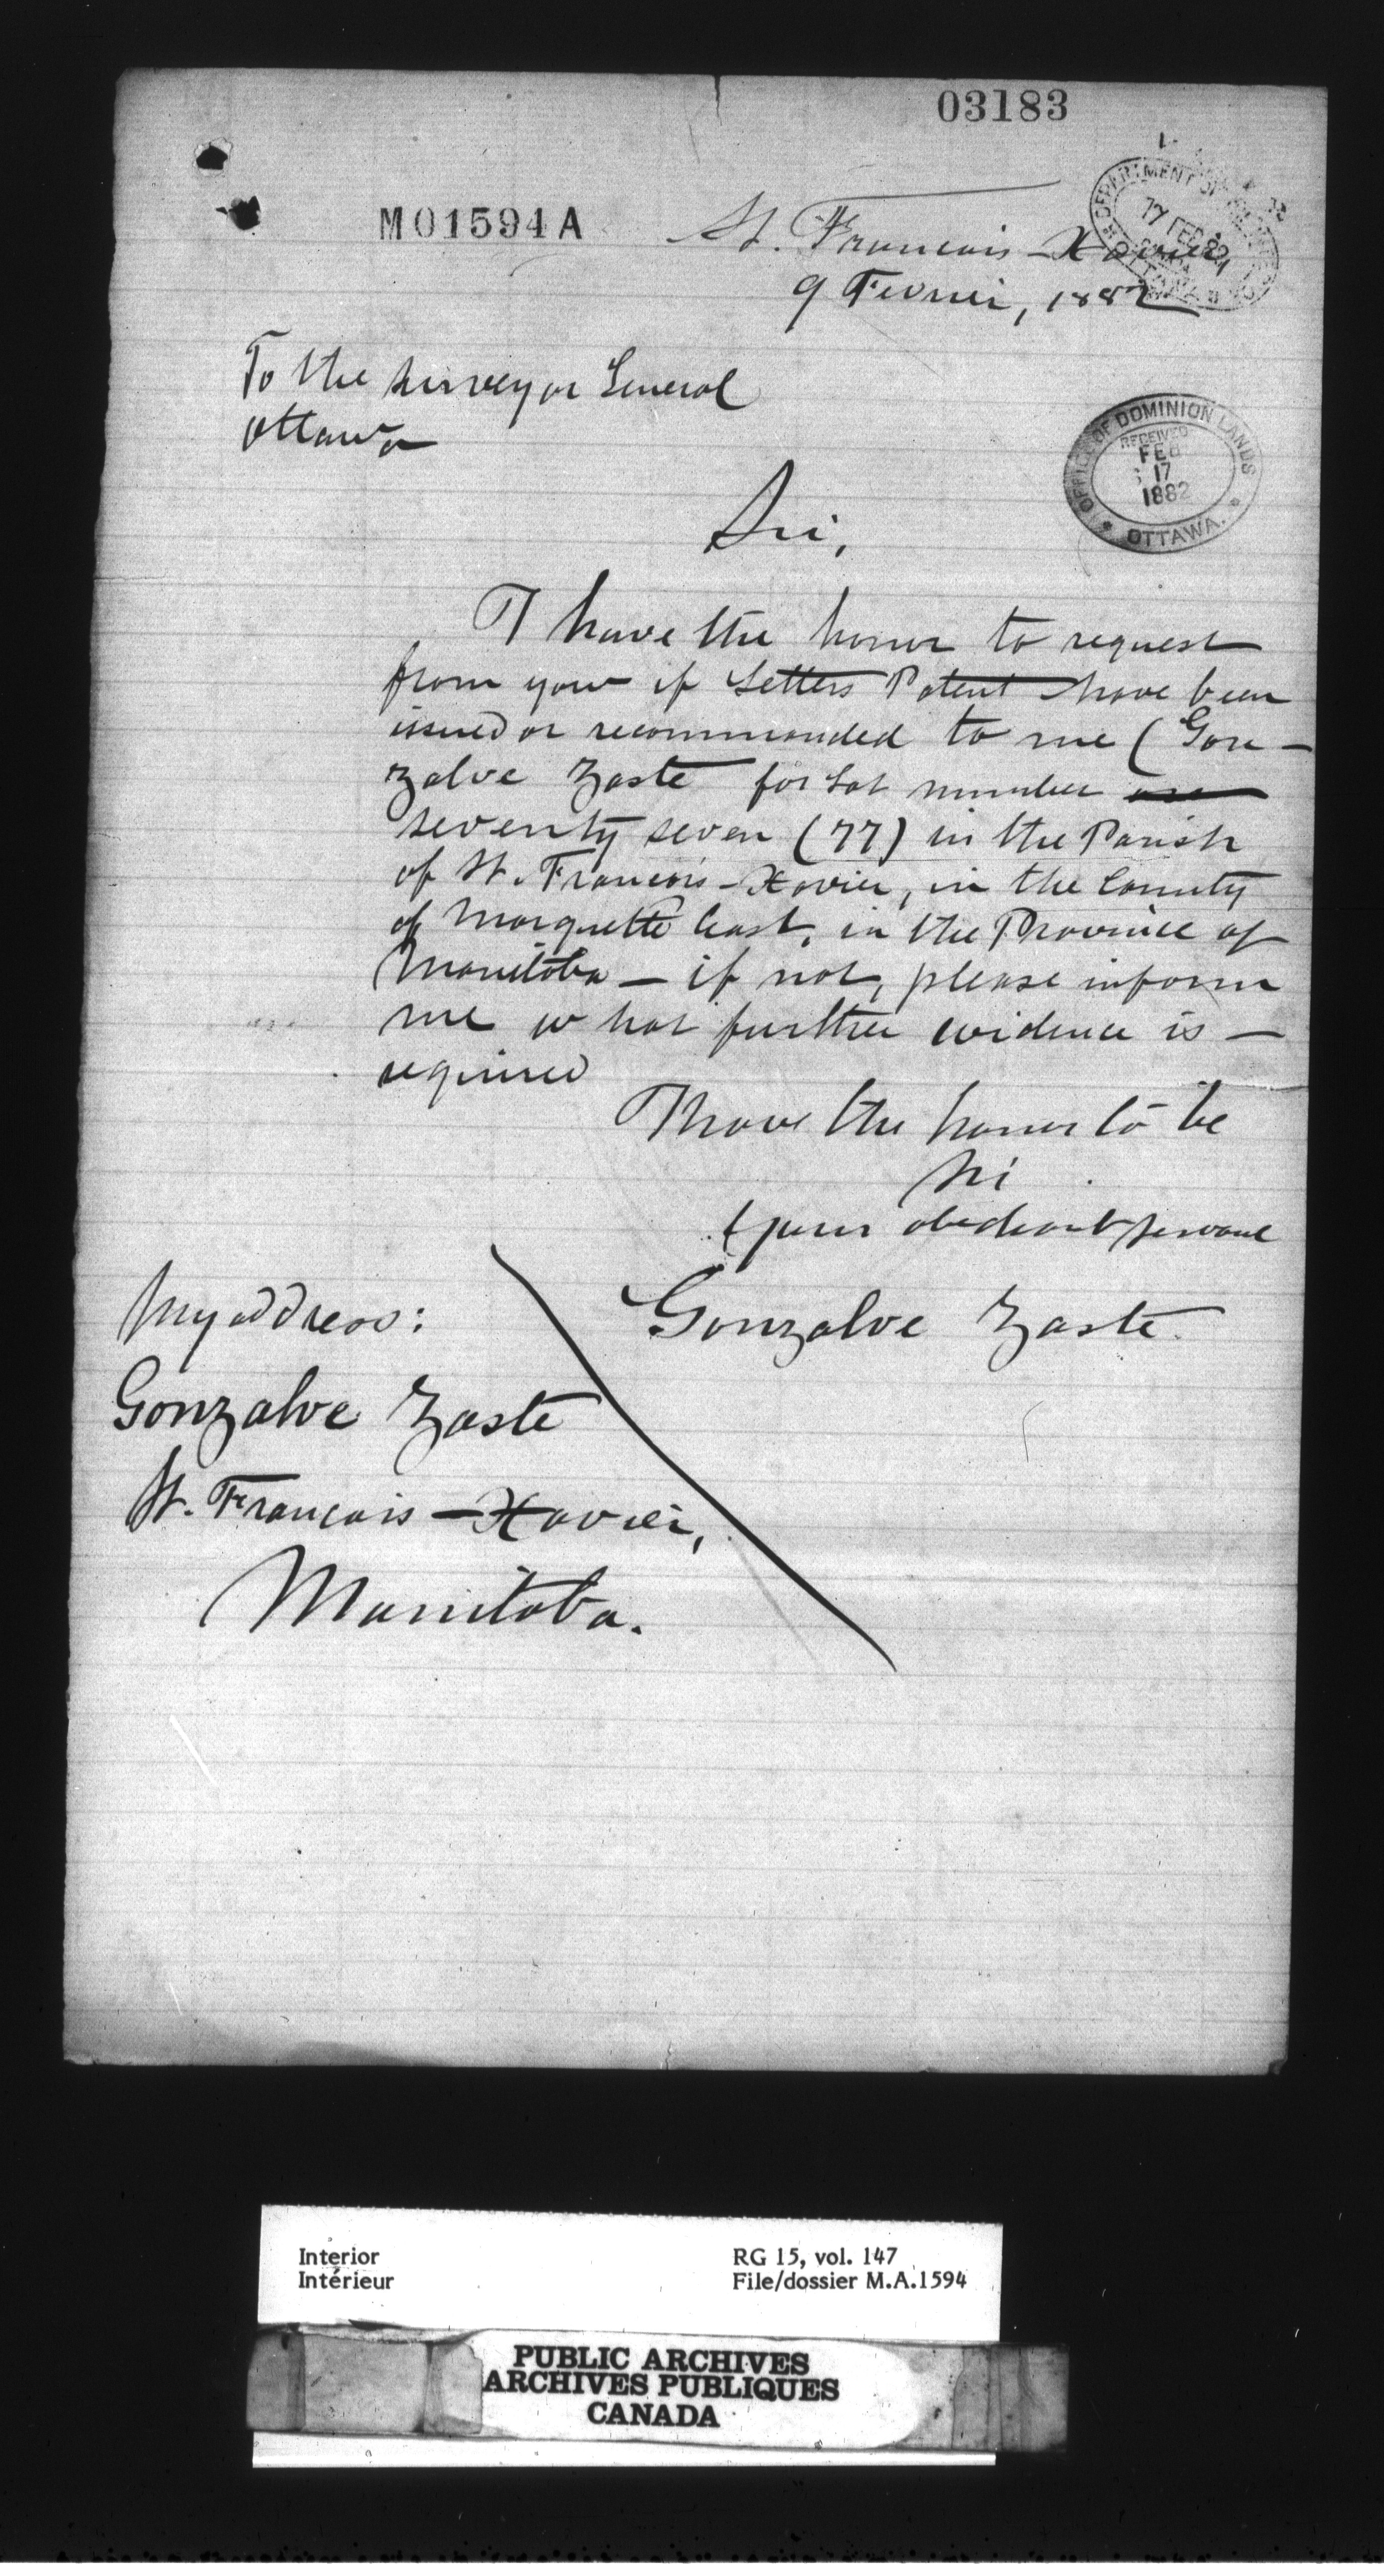 03183
M01594A
St. Francois-Xavier
9 Fevrier, 1882
DEPARTMENT OF
17 FEB 82
OTTAWA
To the Surveyor General
Ottawa
OFFICE OF DOMINION LANDS
RECEIVED
FEB
17
1882
OTTAWA.
Sir,
I have the honor to request
from your if Letters Patent have been
issued or recommended to me (Gon-
zalve Zaste for Lot number
seventy seven (77) in the Parish
of St. Francois-Xavier, in the County
of Marquette East, in the Province of
Manitoba — if not, please inform
me what further evidence is —
required
I have the honor to be
Sir
your obedient servant
Gonzalve Zaste
My address:
Gonzalve Zaste
St. Francois-Xavier,
Manitoba.
Interior
Intérieur
RG 15, vol. 147
File/dossier M.A.1594
PUBLIC ARCHIVES
ARCHIVES PUBLIQUES
CANADA